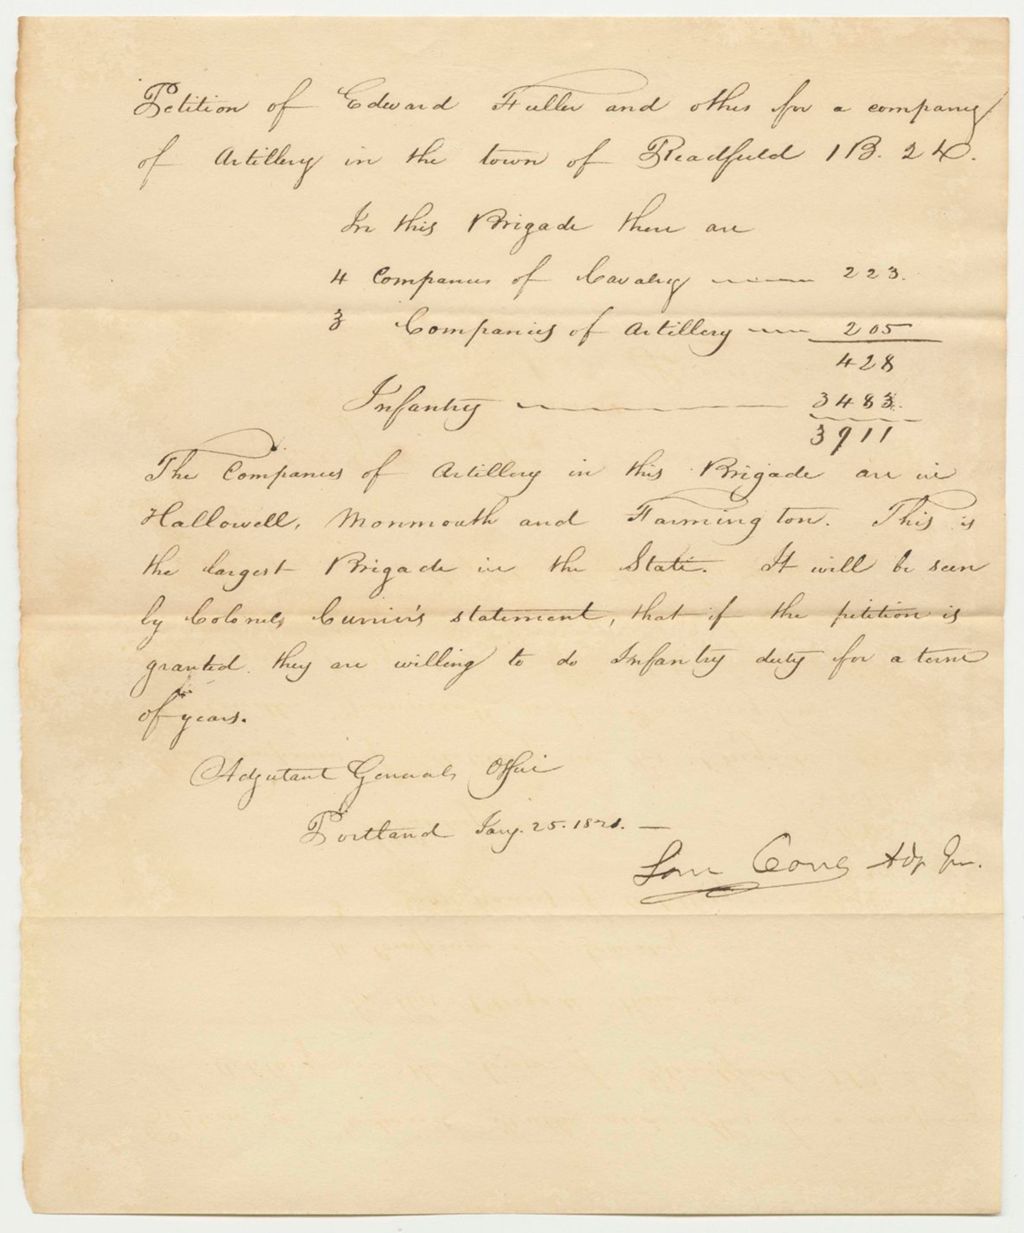 Petition of Edward Fuller and others for a company
of Artillery in the town of Readfield 1 B. 2 D.
In this Brigade there are
4 Companies of Cavalry 223.
3 Companies of Artillery 205
428
Infantry 3483.
3911
The Companies of Artillery in this Brigade are in
Hallowell, Monmouth and Farmington. This is
the largest Brigade in the State. It will be seen
by Colonels Currier's statement, that if the petition is
granted they are willing to do Infantry duty for a term
of years.
Adjutant Generals Office
Portland Jany. 25. 1821.
Sam Cony Adj Gen.